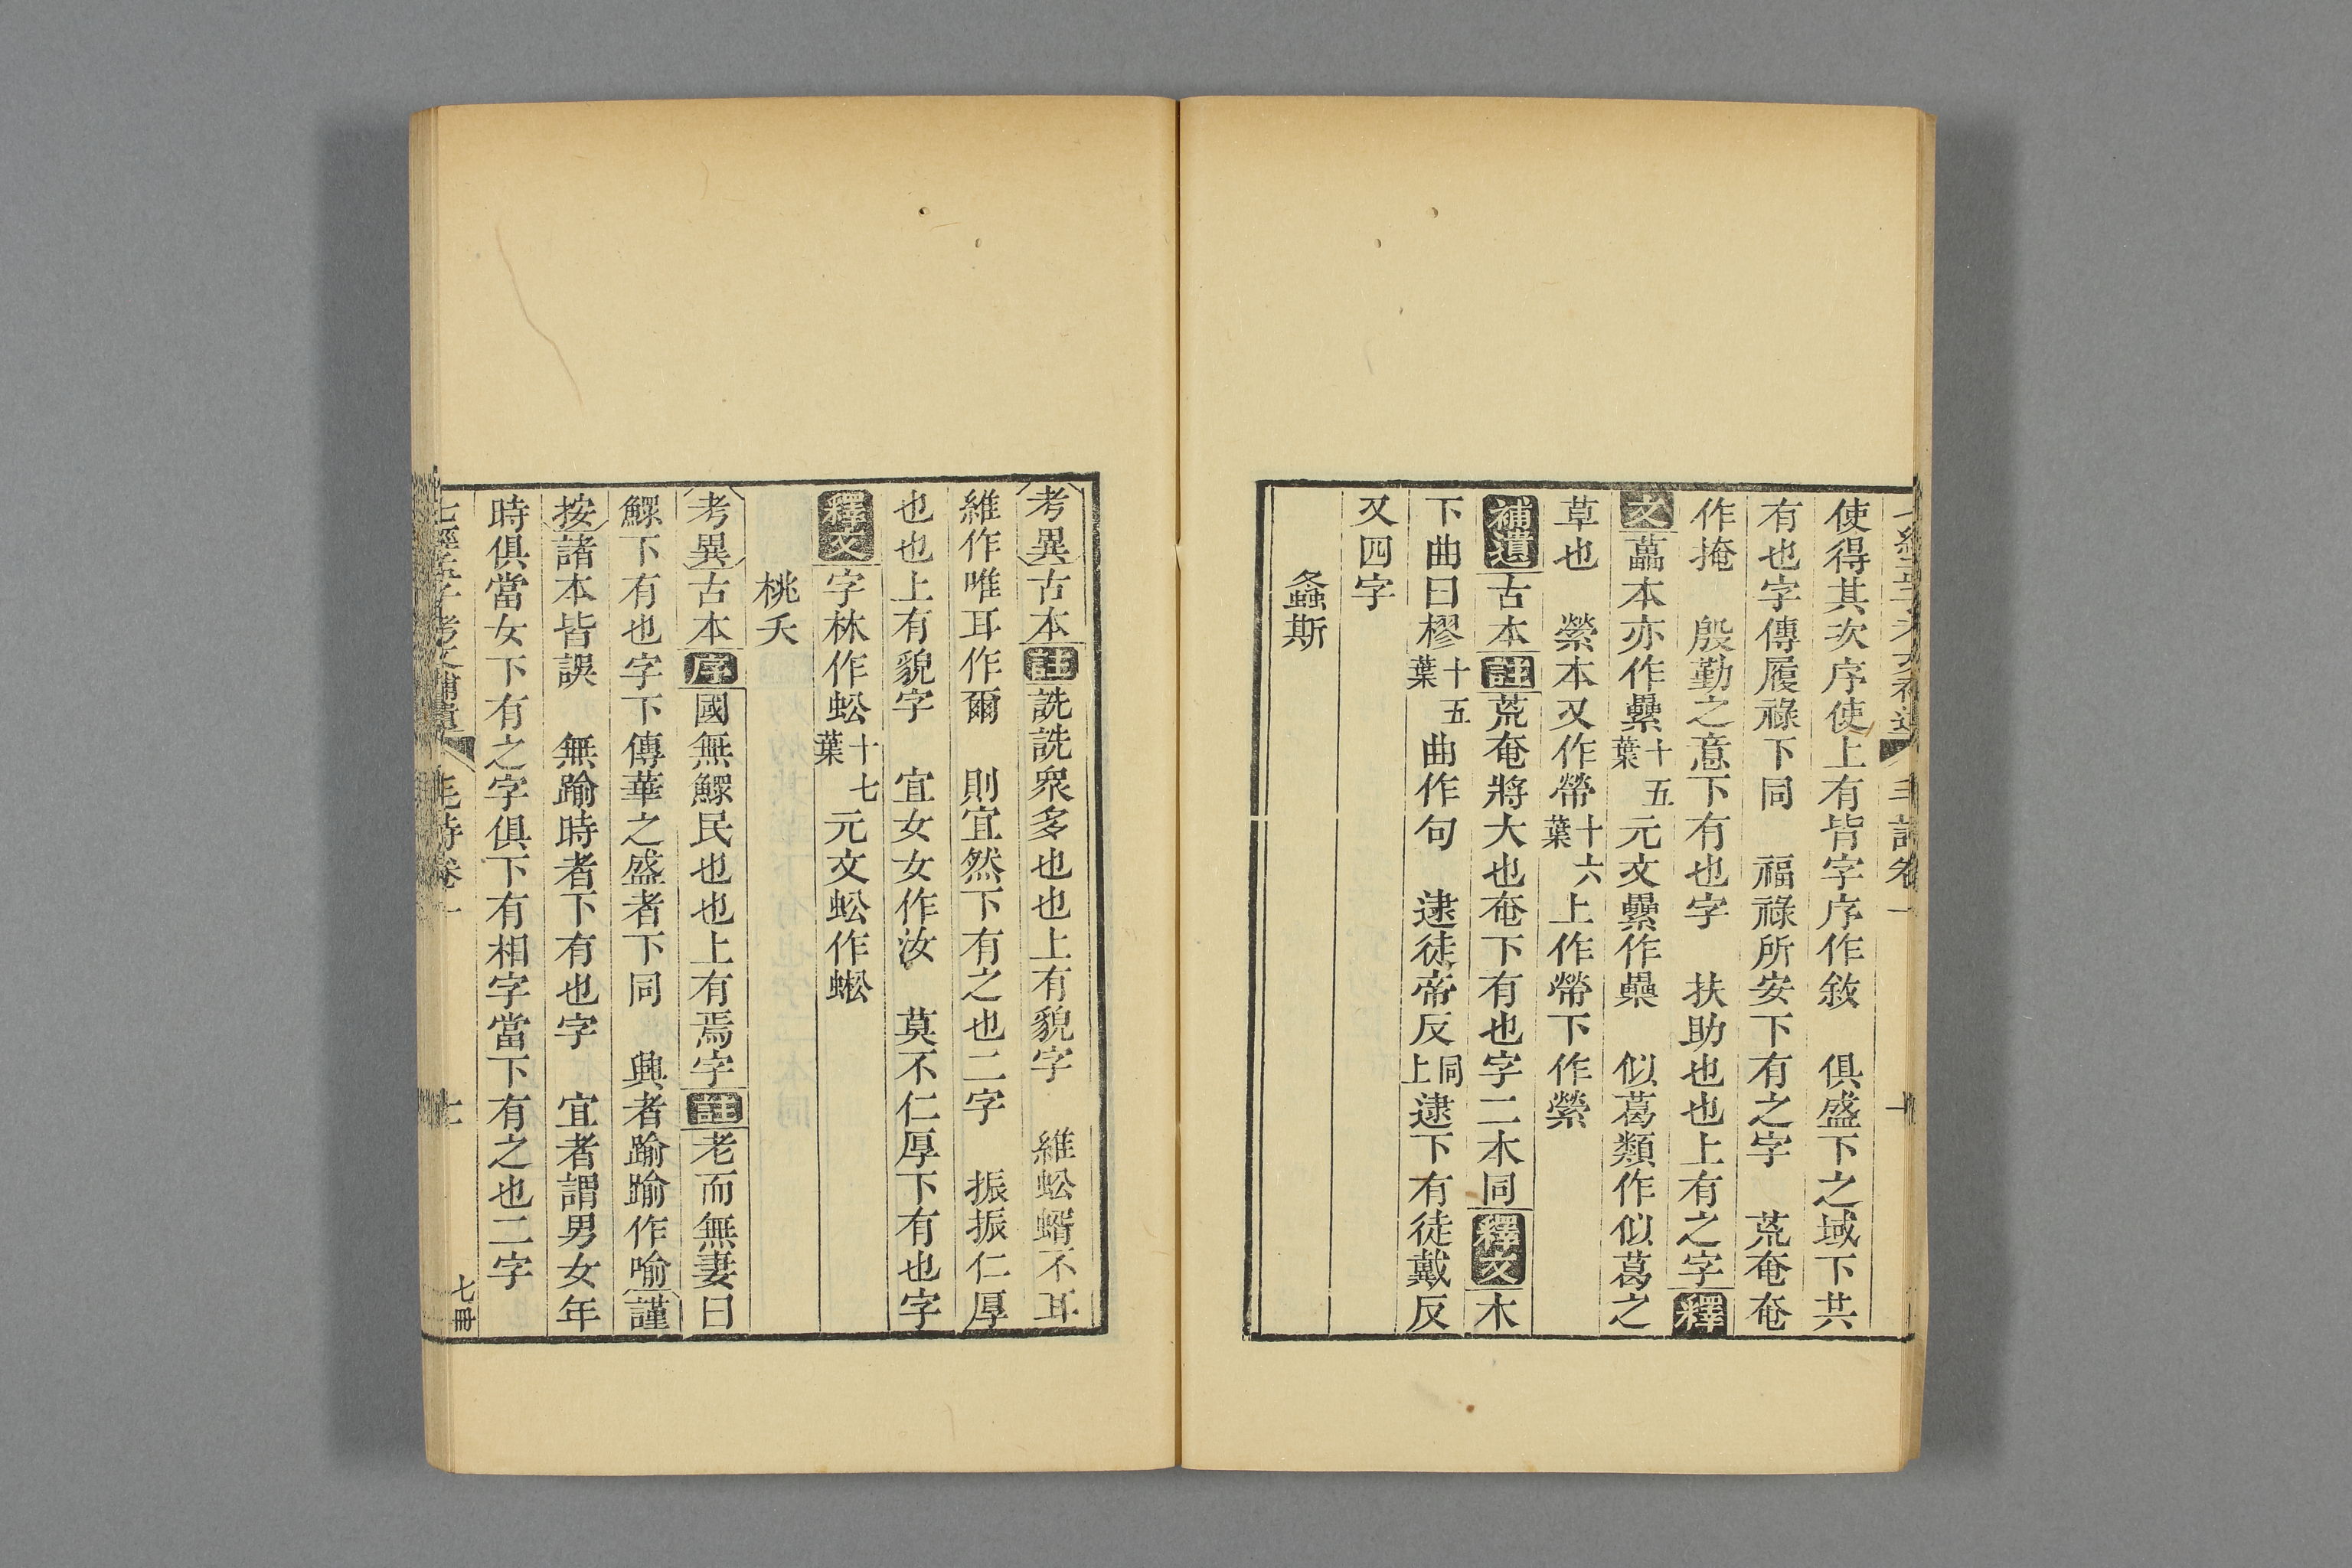 使得其次序使上有皆字序作敘　俱盛下之域下共
有也字傳履祿下同　福祿所安下有之字　荒奄奄
作掩　殷勤之意下有也字　扶助也也上有之字釋
文藟本亦作纍十五葉元文纍作櫐　似葛類作似葛之
草也　縈本又作帶十六葉上作帶下作縈
補遺古本註荒奄將大也奄下有也字二本同釋文木
下曲曰樛十五葉曲作句　逮徒帝反同上逮下有徒戴反
又四字
螽斯
考異古本註詵詵衆多也也上有貌字　維蚣蝑不耳
維作唯耳作爾　則宜然下有之也二字　振振仁厚
也也上有貌字　宜女女作汝　莫不仁厚下有也字
釋文字林作蚣十七葉元文蚣作蜙
桃夭
考異古本序國無鰥民也也上有焉字註老而無妻曰
鰥下有也字下傳華之盛者下同　興者踰踰作喻謹
按諸本皆誤　無踰時者下有也字　宜者謂男女年
時俱當女下有之字俱下有相字當下有之也二字
七經孟子考文補遺　毛詩卷一　七　七冊